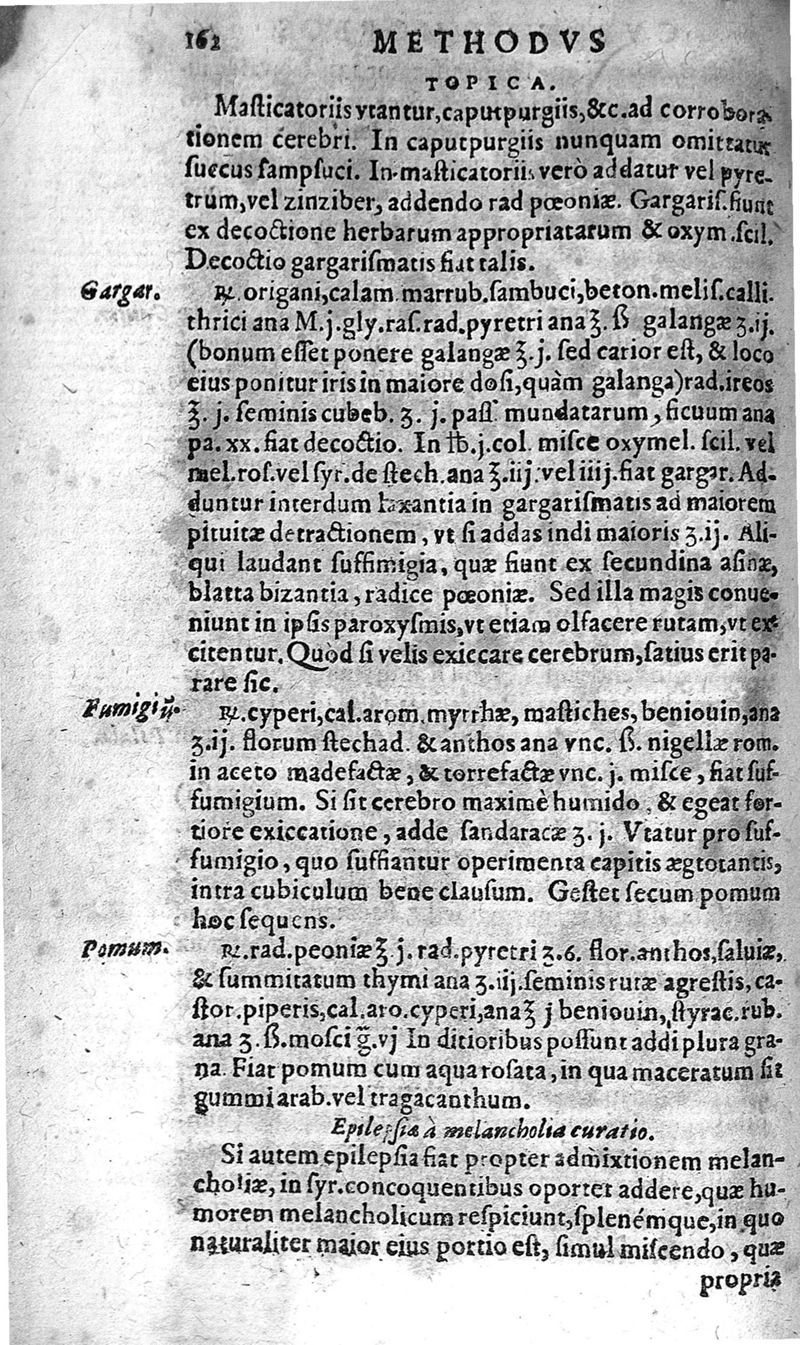 162 METHODVS
TOPICA.
Masticatoriis vtantur, caputpurgiis, &c. ad corrobora-
tionem cerebri. In caputpurgiis nunquam omittatur
succus sampsuci. In masticatoriis verò addatur vel pyre-
trum, vel zinziber, addendo rad pœoniæ. Gargaris. fiunt
ex decoctione herbarum appropriatarum & oxym. scil.
Decoctio gargarismatis fiat talis.
Gargar. ℞. origani, calam. marrub. sambuci, beton. melis. calli.
thrici ana M. j. gly. ras. rad. pyretri ana ℥. ß galangæ ʒ. ij.
(bonum esset ponere galangæ ℥. j. sed carior est, & loco
eius ponitur iris in maiore dosi, quàm galanga) rad. ireos
℥. j. seminis cubeb. ʒ. j. pass mundatarum, ficuum ana
pa. xx. fiat decoctio. In ℔. j. col. misce oxymel. scil. vel
mel. ros. vel syr. de stech. ana ℥. iij. vel iiij. fiat gargar. Ad-
duntur interdum laxantia in gargarismatis ad maiorem
pituitæ detractionem, vt si addas indi maioris ʒ. ij. Ali-
qui laudant suffimigia, quæ fiunt ex secundina asinæ,
blatta bizantia, radice pœoniæ. Sed illa magis conue-
niunt in ipsis paroxysmis, vt etiam olfacere rutam, vt ex-
citentur. Quòd si velis exiccare cerebrum, satius erit pa-
rare sic.
Fumigiū. ℞. cyperi, cal. arom. myrrhæ, mastiches, beniouin, ana
ʒ. ij. florum stechad. & anthos ana vnc. ß. nigellæ rom.
in aceto madefactæ, & torrefactæ vnc. j. misce, fiat suf-
fumigium. Si sit cerebro maximè humido, & egeat for-
tiore exiccatione, adde sandaracæ ʒ. j. Vtatur pro suf-
fumigio, quo suffiantur operimenta capitis ægtotantis,
intra cubiculum bene clausum. Gestet secum pomum
hoc sequens.
Pomum. ℞. rad. peoniæ ℥ j. rad. pyretri ʒ. 6. flor. anthos, saluiæ,
& summitatum thymi ana ʒ. iij. seminis rutæ agrestis, ca-
stor. piperis, cal. aro. cyperi, ana ℥ j beniouin, styrac. rub.
ana ʒ. ß. mosci g̃. vj In ditioribus possunt addi plura gra-
na. Fiat pomum cum aqua rosata, in qua maceratum sit
gummi arab. vel tragacanthum.
Epilepsia à melancholia curatio.
Si autem epilepsia fiat propter admixtionem melan-
choliæ, in syr. concoquentibus oportet addere, quæ hu-
morem melancholicum respiciunt, splenémque, in quo
naturaliter maior eius portio est, simul miscendo, quæ
propria